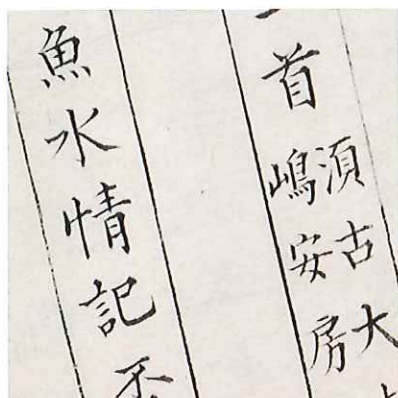 首
須古大
嶋安房
魚水情記